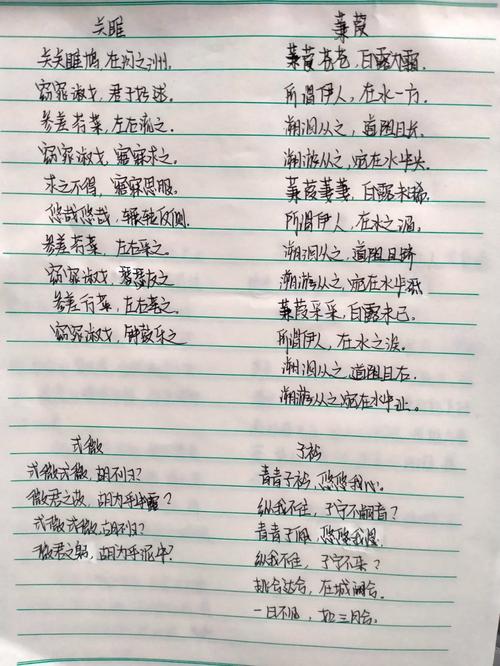 关雎
关关雎鸠,在河之洲。
窈窕淑女,君子好逑。
参差荇菜,左右流之。
窈窕淑女,寤寐求之。
求之不得,寤寐思服。
悠哉悠哉,辗转反侧。
参差荇菜,左右采之。
窈窕淑女,琴瑟友之
参差荇菜,左右芼之。
窈窕淑女,钟鼓乐之
蒹葭
蒹葭苍苍,白露为霜。
所谓伊人,在水一方。
溯洄从之,道阻且长。
溯游从之,宛在水中央。
蒹葭萋萋,白露未晞。
所谓伊人,在水之湄。
溯洄从之,道阻且跻
溯游从之,宛在水中坻
蒹葭采采,白露未已。
所谓伊人,在水之涘。
溯洄从之,道阻且右。
溯游从之,宛在水中沚。
式微
式微式微,胡不归?
微君之故,胡为乎中露?
式微式微,胡不归?
微君之躬,胡为乎泥中?
子衿
青青子衿,悠悠我心。
纵我不往,子宁不嗣音?
青青子佩,悠悠我思。
纵我不往,子宁不来?
挑兮达兮,在城阙兮。
一日不见,如三月兮。